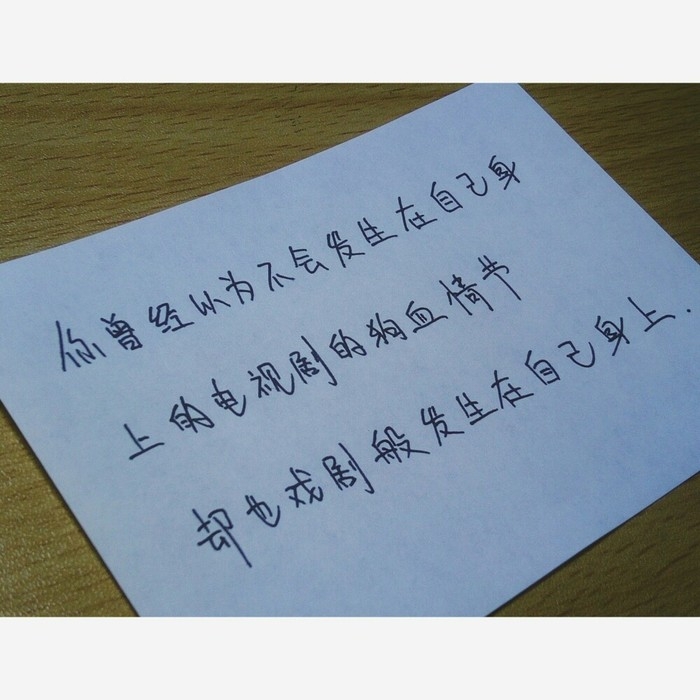 你曾经以为不会发生在自己身
上的电视剧的狗血情节
却也戏剧般发生在自己身上.